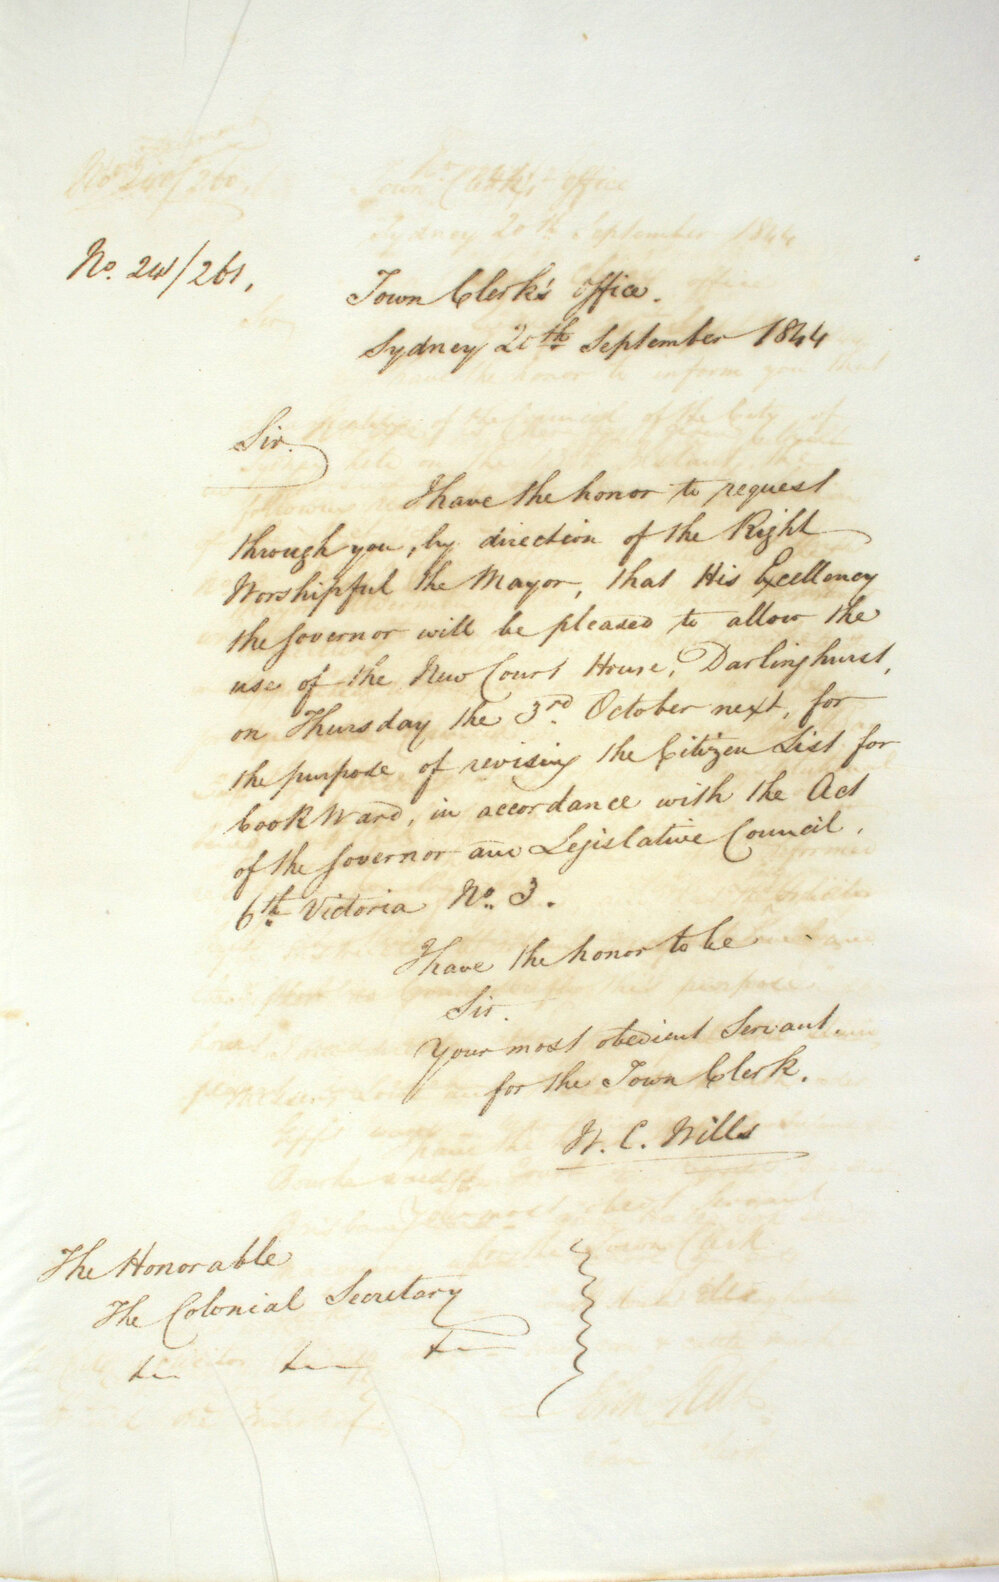 No. 24/261,
Town Clerk's Office.
Sydney 20th September 1844
Sir.
I have the honor to request
through you, by direction of the Right
Worshipful the Mayor, that His Excellency
the Governor will be pleased to allow the
use of the New Court House, Darlinghurst,
on Thursday the 3rd October next, for
the purpose of revising the Citizen List for
Cook Ward, in accordance with the Act
of the Governor and Legislative Council,
6th Victoria No. 3.
I have the honor to be
Sir.
Your most obedient Servant.
for the Town Clerk.
W. C. Wills
The Honorable
The Colonial Secretary